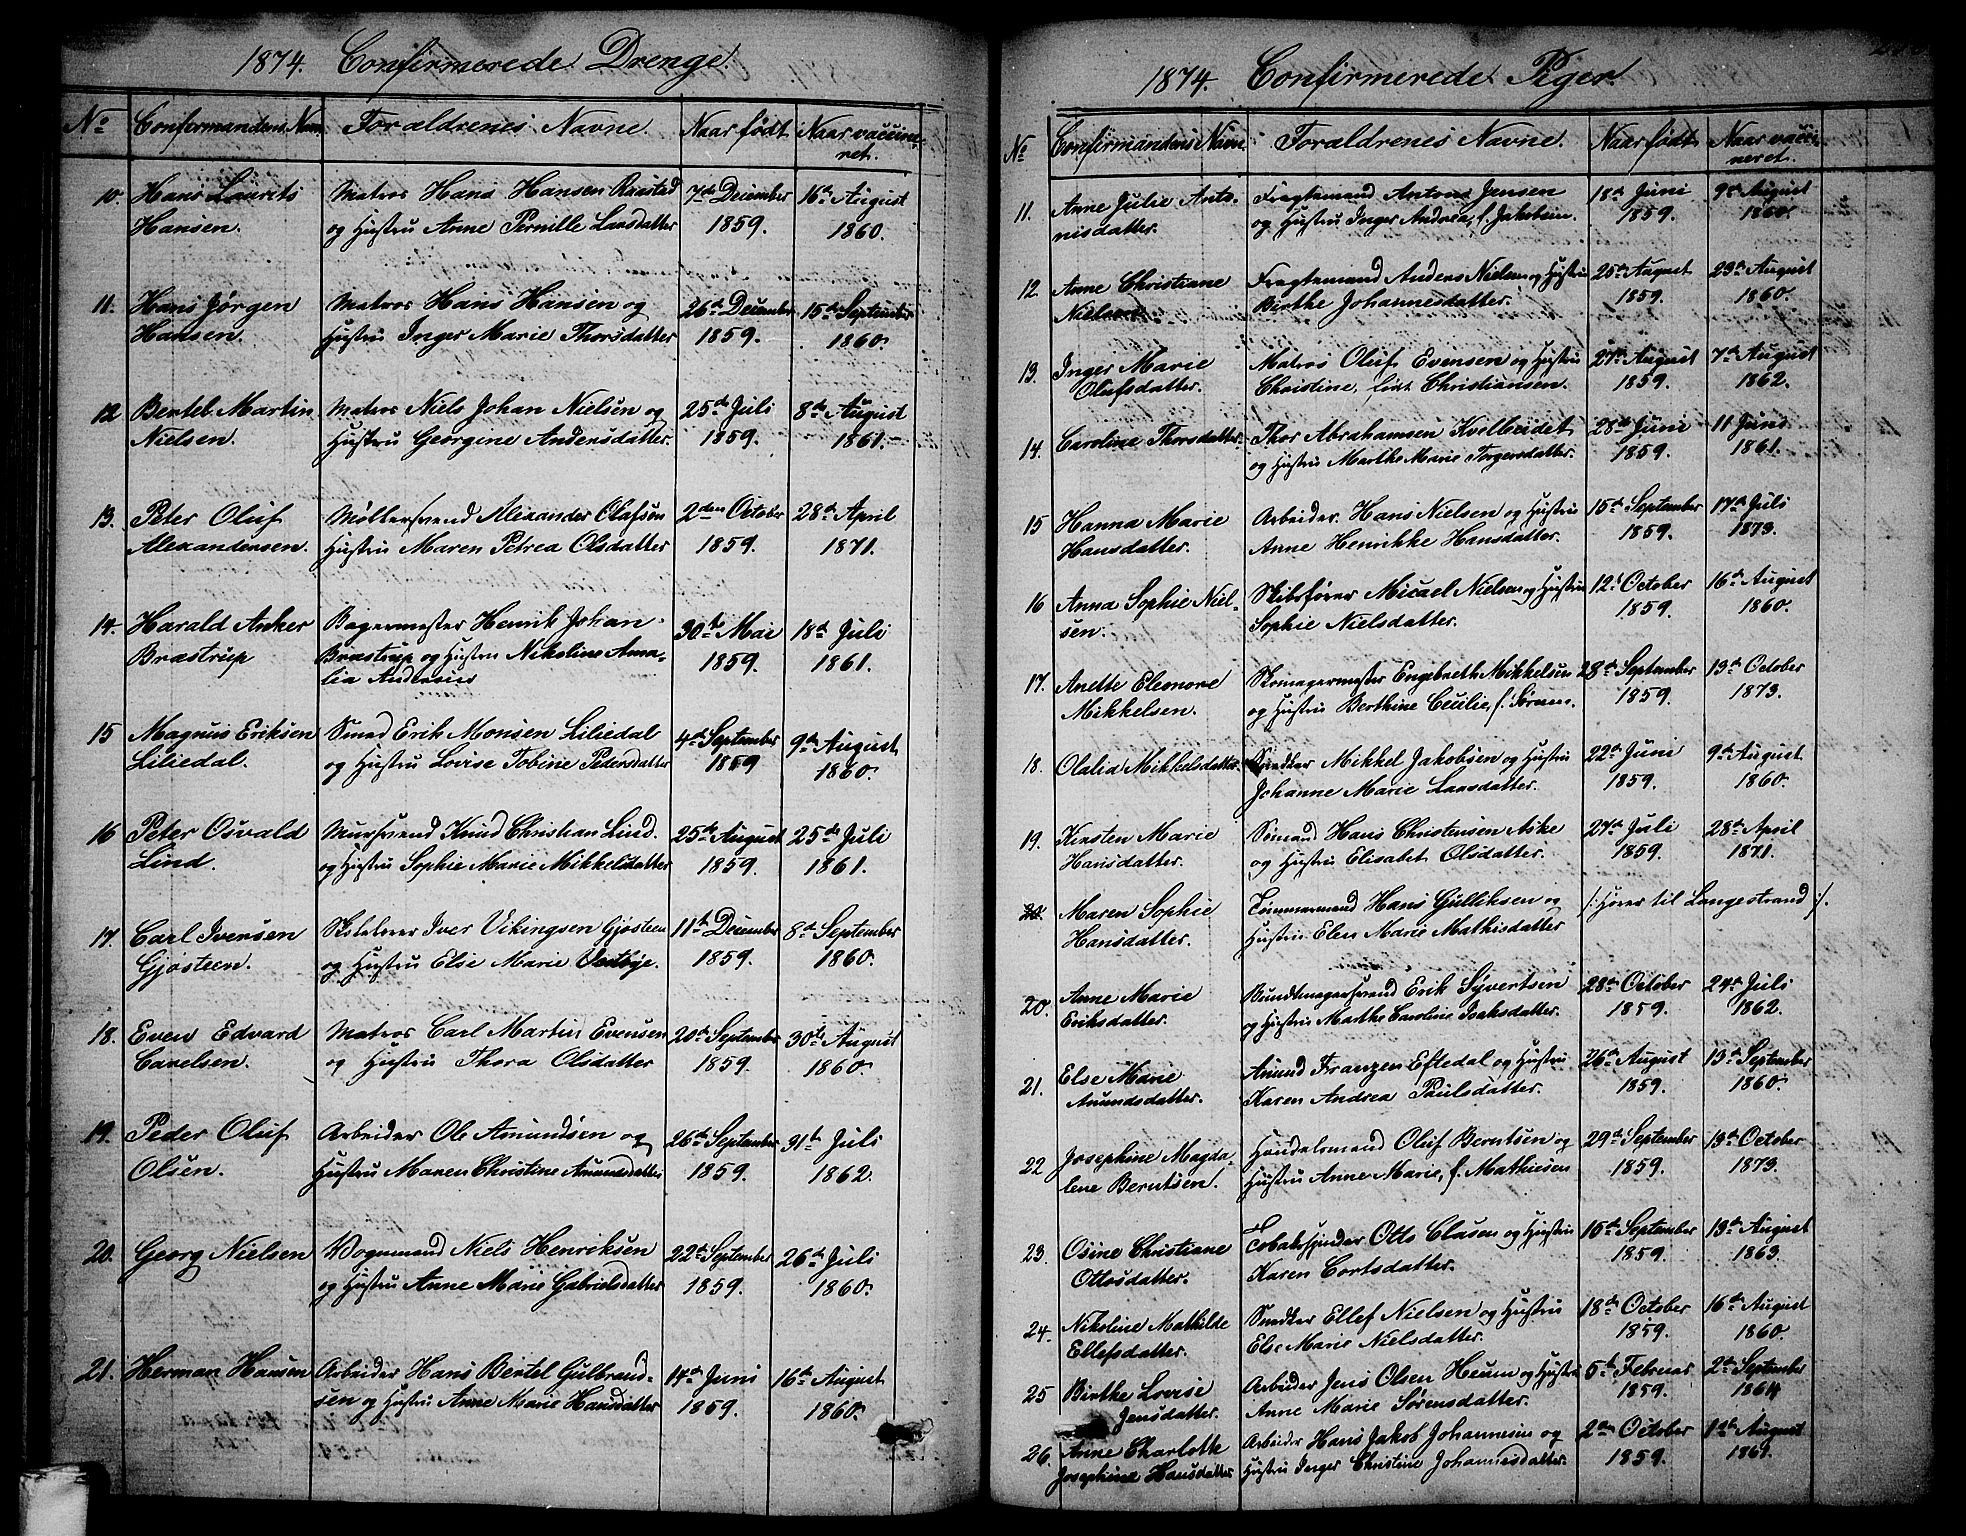 1874. Confirmerede Drenge.
No Confirmandens Navn Forældrenes Navne. Naar født Naar vaccine-
ret.
10. Hans Laurits Matros Hans Hansen Raastad 7de December 16de August
Hansen. og Hustru Anne Pernille Larsdatter 1859. 1860.
11. Hans Jørgen Matros Hans Hansen og 26de December 15de September
Hansen. Hustru Inger Marie Thorsdatter 1859. 1860.
12 Bertel Martin Matros Niels Johan Nielsen og 25de Juli 8de August
Nielsen. Hustru Georgine Andersdatter. 1859. 1861.
13. Peter Oluf Møllersvend Alexander Olafsen 2den October 28de April
Alexandersen. Hustru Maren Petrea Olsdatter 1859. 1871.
14. Harald Anker Bagermester Henrik Johan 30te Mai 18de Juli
Bræstrup Bræstrup og Hustru Nikoline Ama- 1859. 1861.
lia
15 Magnus Eriksen Smed Erik Monsen Liliedal 4de September 9de August
Liliedal. og Hustru Lovise Tobine Pedersdatter 1859 1860.
16 Peter Osvald Mursvend Knud Christian Lind. 25de August 25de Juli
Lind. og Hustru Sophie Marie Mikkelsdatter 1859. 1861.
17. Carl Iversen Iver Vikingsen Gjøsteen 11te December 8de September
Gjøsteen. og Hustru Else Marie 1859. 1860.
18. Even Edvard Matros Carl Martin Evensen 20de September 30te August
Carelsen. og Hustru Thora Olsdatter 1859. 1860.
19. Peder Oluf Arbeider Ole Amundsen og 26de September 31te Juli
Olsen. Hustru Maren Christine Amundsdatter 1859. 1862.
20. Georg Nielsen Vognmand Niels Henriksen 22de September 26de Juli
og Hustru Anne Marie Gabrielsdatter 1859. 1860.
21. Herman Hansen Arbeider Hans Bertel Gulbrand- 14de Juni 16de August
sen og Hustru Anne Marie Hansdatter 1859. 1860.
1874. Confirmerede Piger
No Confirmandens Navn Forældrenes Navne. Naar født Naar vacci-
neret.
11. Anne Julie Anto- Fragtemand Antons Jensen 18de Juni 9de August
nisdatter. og Hustru Inger Andrea, f. Jakobsen. 1859. 1860.
12. Anne Christiane Fragtemand Anders Nielsen og Hustru 25de August 29de August
Nielsen Birthe Johannesdatter. 1859. 1860.
13. Inger Marie Matros Oluf Evensen og Hustru 27de August 7de August
Olufsdatter. Christine, født Christiansen. 1859. 1862.
14. Caroline Thorsdatter Thor Abrahamsen Kvelbeidet 28de Juni 11 Juni
og Hustru Marthe Marie Torgersdatter. 1859. 1861.
15 Hanna Marie Arbeider. Hans Nielsen og Hustru 15de September 17de Juli
Hansdatter. Anne Henrikke Hansdatter. 1859. 1873.
16 Anna Sophie Niel- Skibsfører Micael Nielsen og Hustru 12te October 16de August
sen. Sophie Nielsdatter. 1859. 1860.
17. Anette Eleonore Skomagermester Engebreth Mikkelsen 28de September 13de October
Mikkelsen. og Hustru Berthine Cecilie, f. Sørensen. 1859. 1873.
18. Olalia Mikkelsdatter. Snedker Mikkel Jakobsen og Hustru 22de Juni 9de August
Johanne Marie Larsdatter. 1859. 1860.
19. Kirsten Marie Sømand Hans Christensen Aske 27de Juli 28de April
Hansdatter. og Hustru Elisabet Olsdatter. 1859. 1871.
20. Maren Sophie Tømmermand Hans Gulliksen og /: Hører til Langestrand :/.
Hansdatter. Hustru Elen Marie Mathisdatter
20. Anne Marie Bundtmagersvend Erik Syvertsen 28de October 24de Juli
Eriksdatter. og Hustru Marthe Caroline Isaksdatter. 1859. 1862.
21. Else Marie Amund Franzen Eftedal og Hustru 26de August 13de September
Amundsdatter. Karen Andrea Paulsdatter. 1859. 1860.
22 Josephine Magda- Handelsmand Oluf Berntsen og 29de September 13de October
lene Berntsen. Hustru Anne Marie, f. Mathiesen 1859. 1873.
23. Osine Christiane Tobakspinder Otto Clasen og Hustru 15de September 13de August
Ottosdatter. Karen Cortsdatter. 1859. 1863.
24. Nikoline Mathilde Snedker Ellef Nielsen og Hustru 18de October 16de August
Ellefsdatter. Else Marie Nielsdatter. 1859. 1860.
25 Birthe Lovise Arbeider Jens Olsen Heum og Hustru 5te Februar 2de September
Jensdatter. Anne Marie Sørensdatter. 1859. 1864
26. Anne Charlotte Arbeider Hans Jakob Johannesen og 2den October 1ste August
Josephine Hansdatter Hustru Inger Christine Johannesdatter. 1859. 1861.